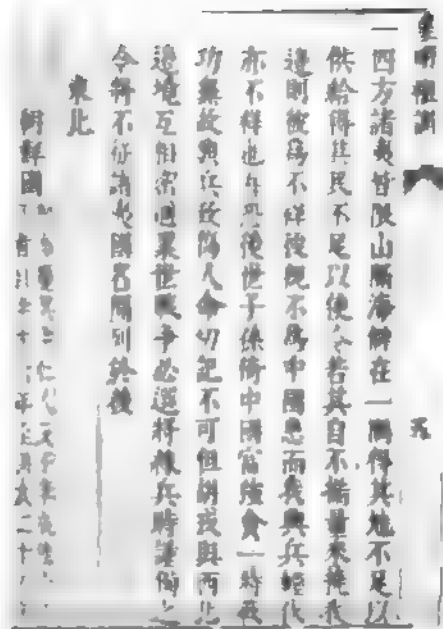 皇明祖訓
五
一
四方諸夷皆限山隔海僻在一隅得其地不足以
供給得其民不足以使令若其自不揣量來撓我
邊則彼爲不祥彼既不爲中國患而我興兵輕伐
亦不祥也吾恐後世子孫倚中國富強貪一時戰
功無故興兵致傷人命切記不可但胡戎與西北
邊境互相密邇累世戰爭必選將練兵時謹備之
今將不征諸夷國名開列於後
東北
朝鮮國